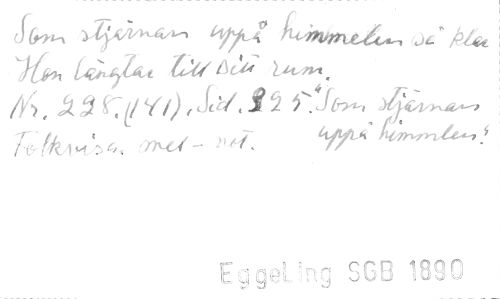 Som stjärnan uppå himmelen så klar
Hon längtar till sitt rum.
Nr. 228. (141), Sid. 225. "Som stjärnan
uppå himmlen".
Folkvisa. mel-not.
EggeLing SGB 1890